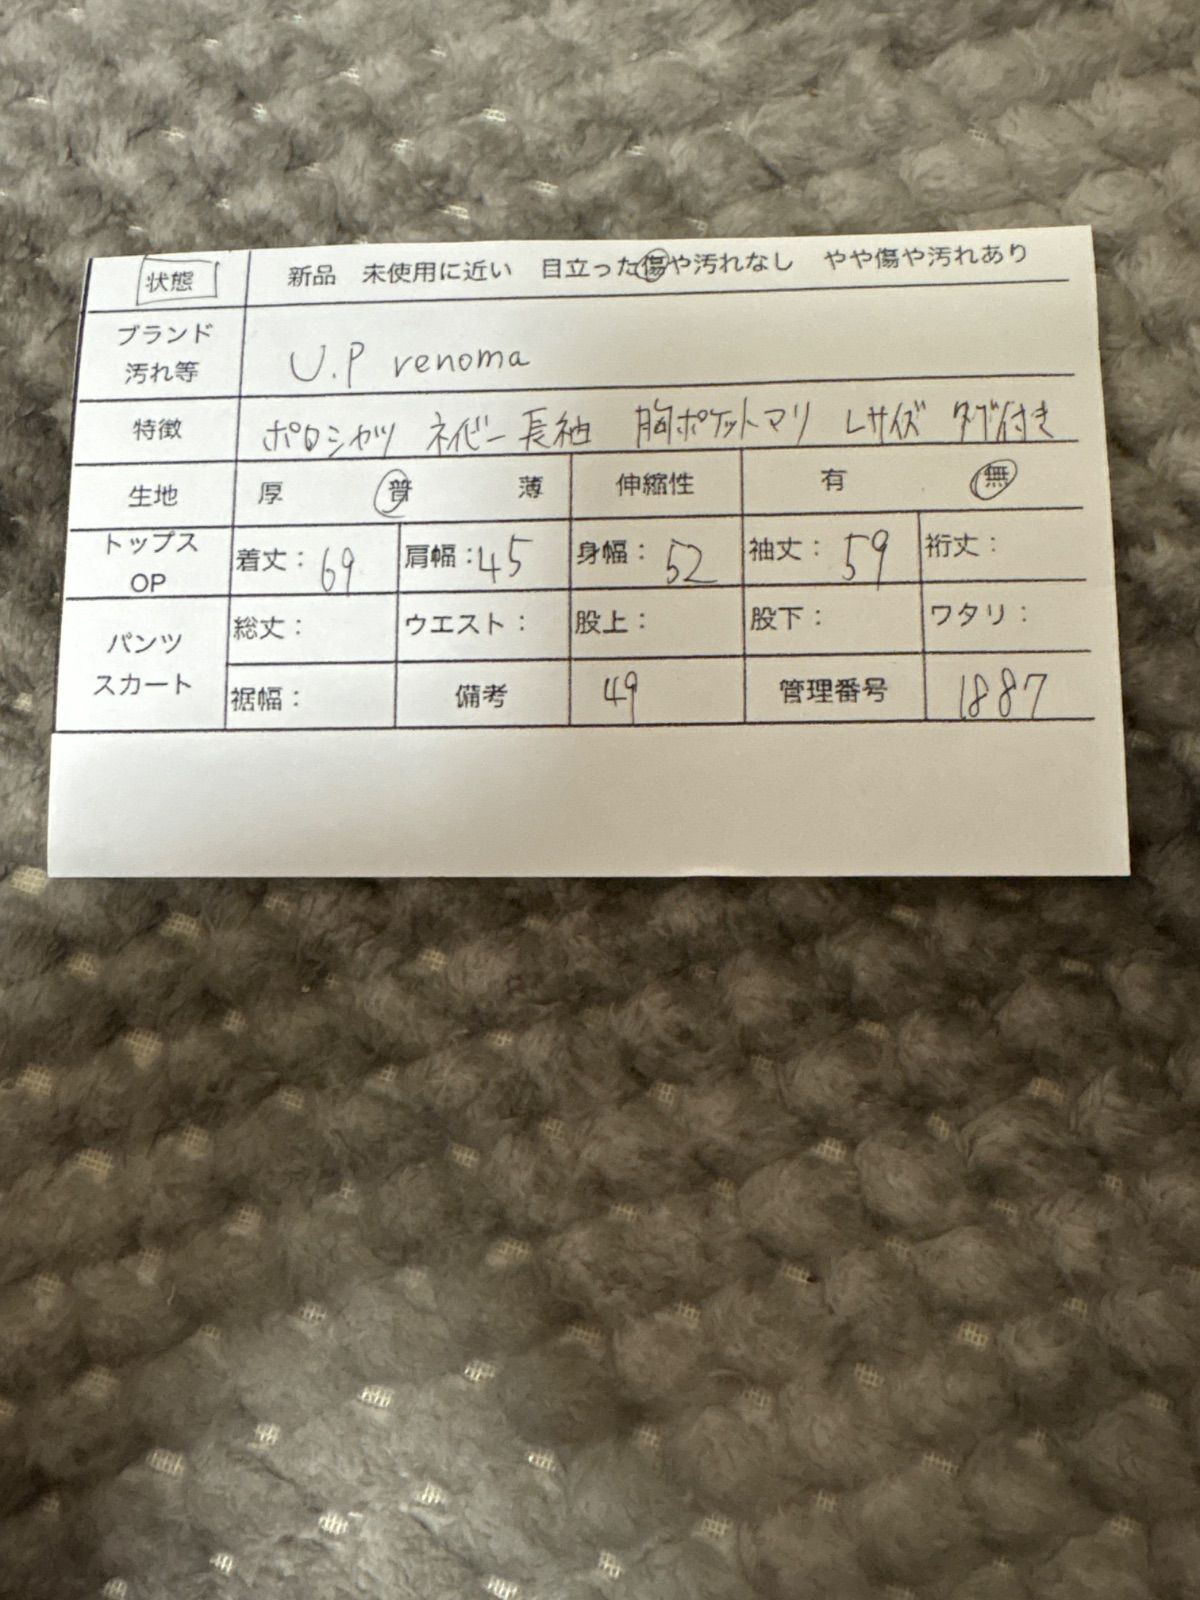 状態 新品 未使用に近い 目立った傷や汚れなし やや傷や汚れあり
ブランド
汚れ等 U.P renoma
特徴 ポロシャツ ネイビー 長袖 胸ポケットマリ Lサイズ タグ付き
生地 厚 普 薄 伸縮性 有 無
トップス
OP 着丈：69 肩幅：45 身幅：52 袖丈：59 裄丈：
パンツ
スカート 総丈： ウエスト： 股上： 股下： ワタリ：
裾幅： 備考 49 管理番号 1887